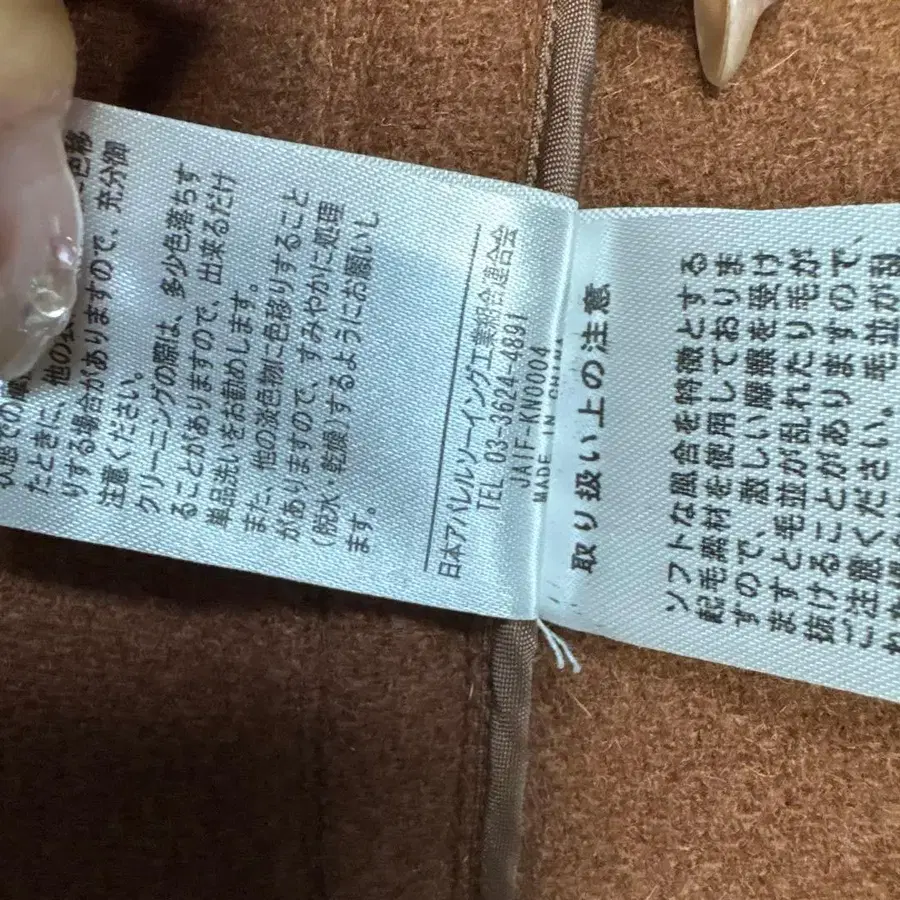 たときに、他の 色移
りする場合がありますので、充分御
注意ください。
クリーニングの際は、多少色落ちす
ることがありますので、出来るだけ
単品洗いをお勧めします。
また、他の淡色物に色移りすること
がありますので、すみやかに処理
(脱水、乾燥)するようにお願いし
ます。
日本アパレルソーイング工業組合連合会
TEL 03-3624-4891
JAIF-KN0004
MADE IN CHINA
取り扱い上の注意
ソフトな風合を特徴とする
起毛素材を使用しておりま
すので、激しい摩擦を受け
ますと毛並が乱れたり毛が
抜けることがありますので、
ご注意ください。毛並が乱